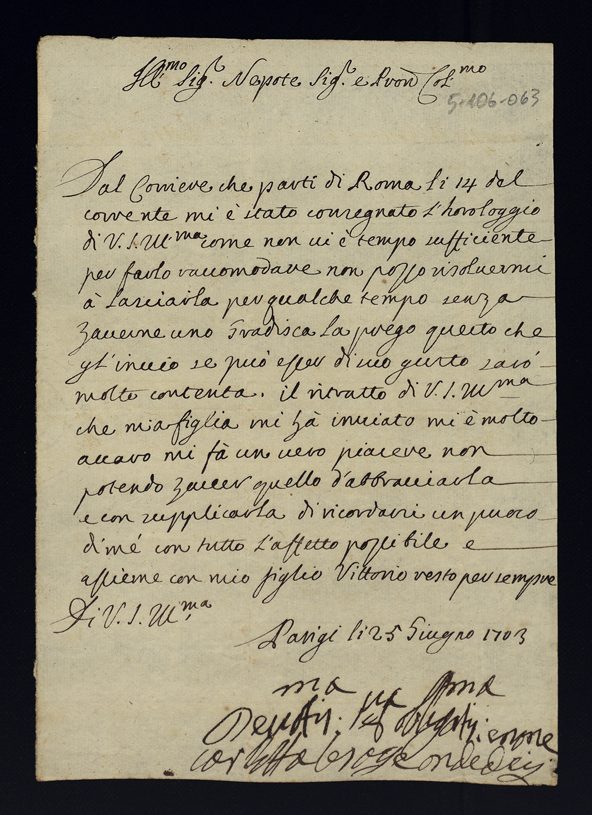 Ill.mo Sig.r Nepote Sig.r e Pron Col.mo
5-106-063
Dal Corriere che parti di Roma li 14 del
corrente mi è stato consegnato l'horologgio
di V.S. Ill.ma come non vi è tempo sufficiente
per farlo raccomodare non posso risolvermi
à lasciarla per qualche tempo senza
haverne uno Gradisca La prego questo che
gl'invio se può esser di suo gusto sarò
molto contenta. il ritratto di V.S. Ill.ma
che mia figlia mi hà inviato mi è molto
accaro mi fà un vero piacere non
potendo haver quello d'abbracciarla
e con supplicarla di ricordarsi un puoco
di mé con tutto l'affetto possibile e
assieme con mio figlio Vittorio resto per sempre
Di V.S. Ill.ma
Parigi li 25 Giugno 1703